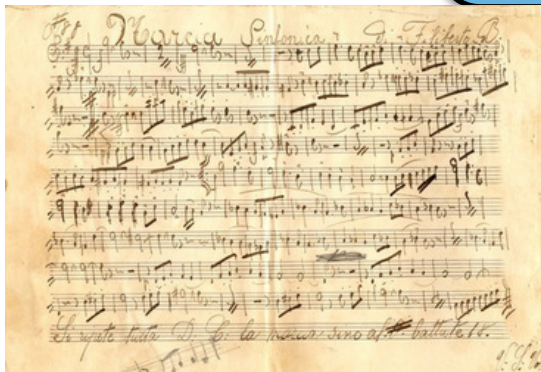 Marcia Sinfonica di Filiberto B.
Si ripete tutta D. C. la marcia sino al battute 18.